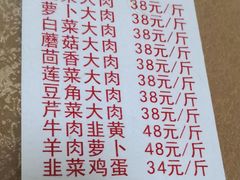 萝卜大肉 38元/斤
白菜大肉 38元/斤
蘑菇大肉 38元/斤
茴香大肉 38元/斤
莲菜大肉 38元/斤
豆角大肉 38元/斤
芹菜大肉 38元/斤
牛肉韭黄 48元/斤
羊肉萝卜 48元/斤
韭菜鸡蛋 34元/斤